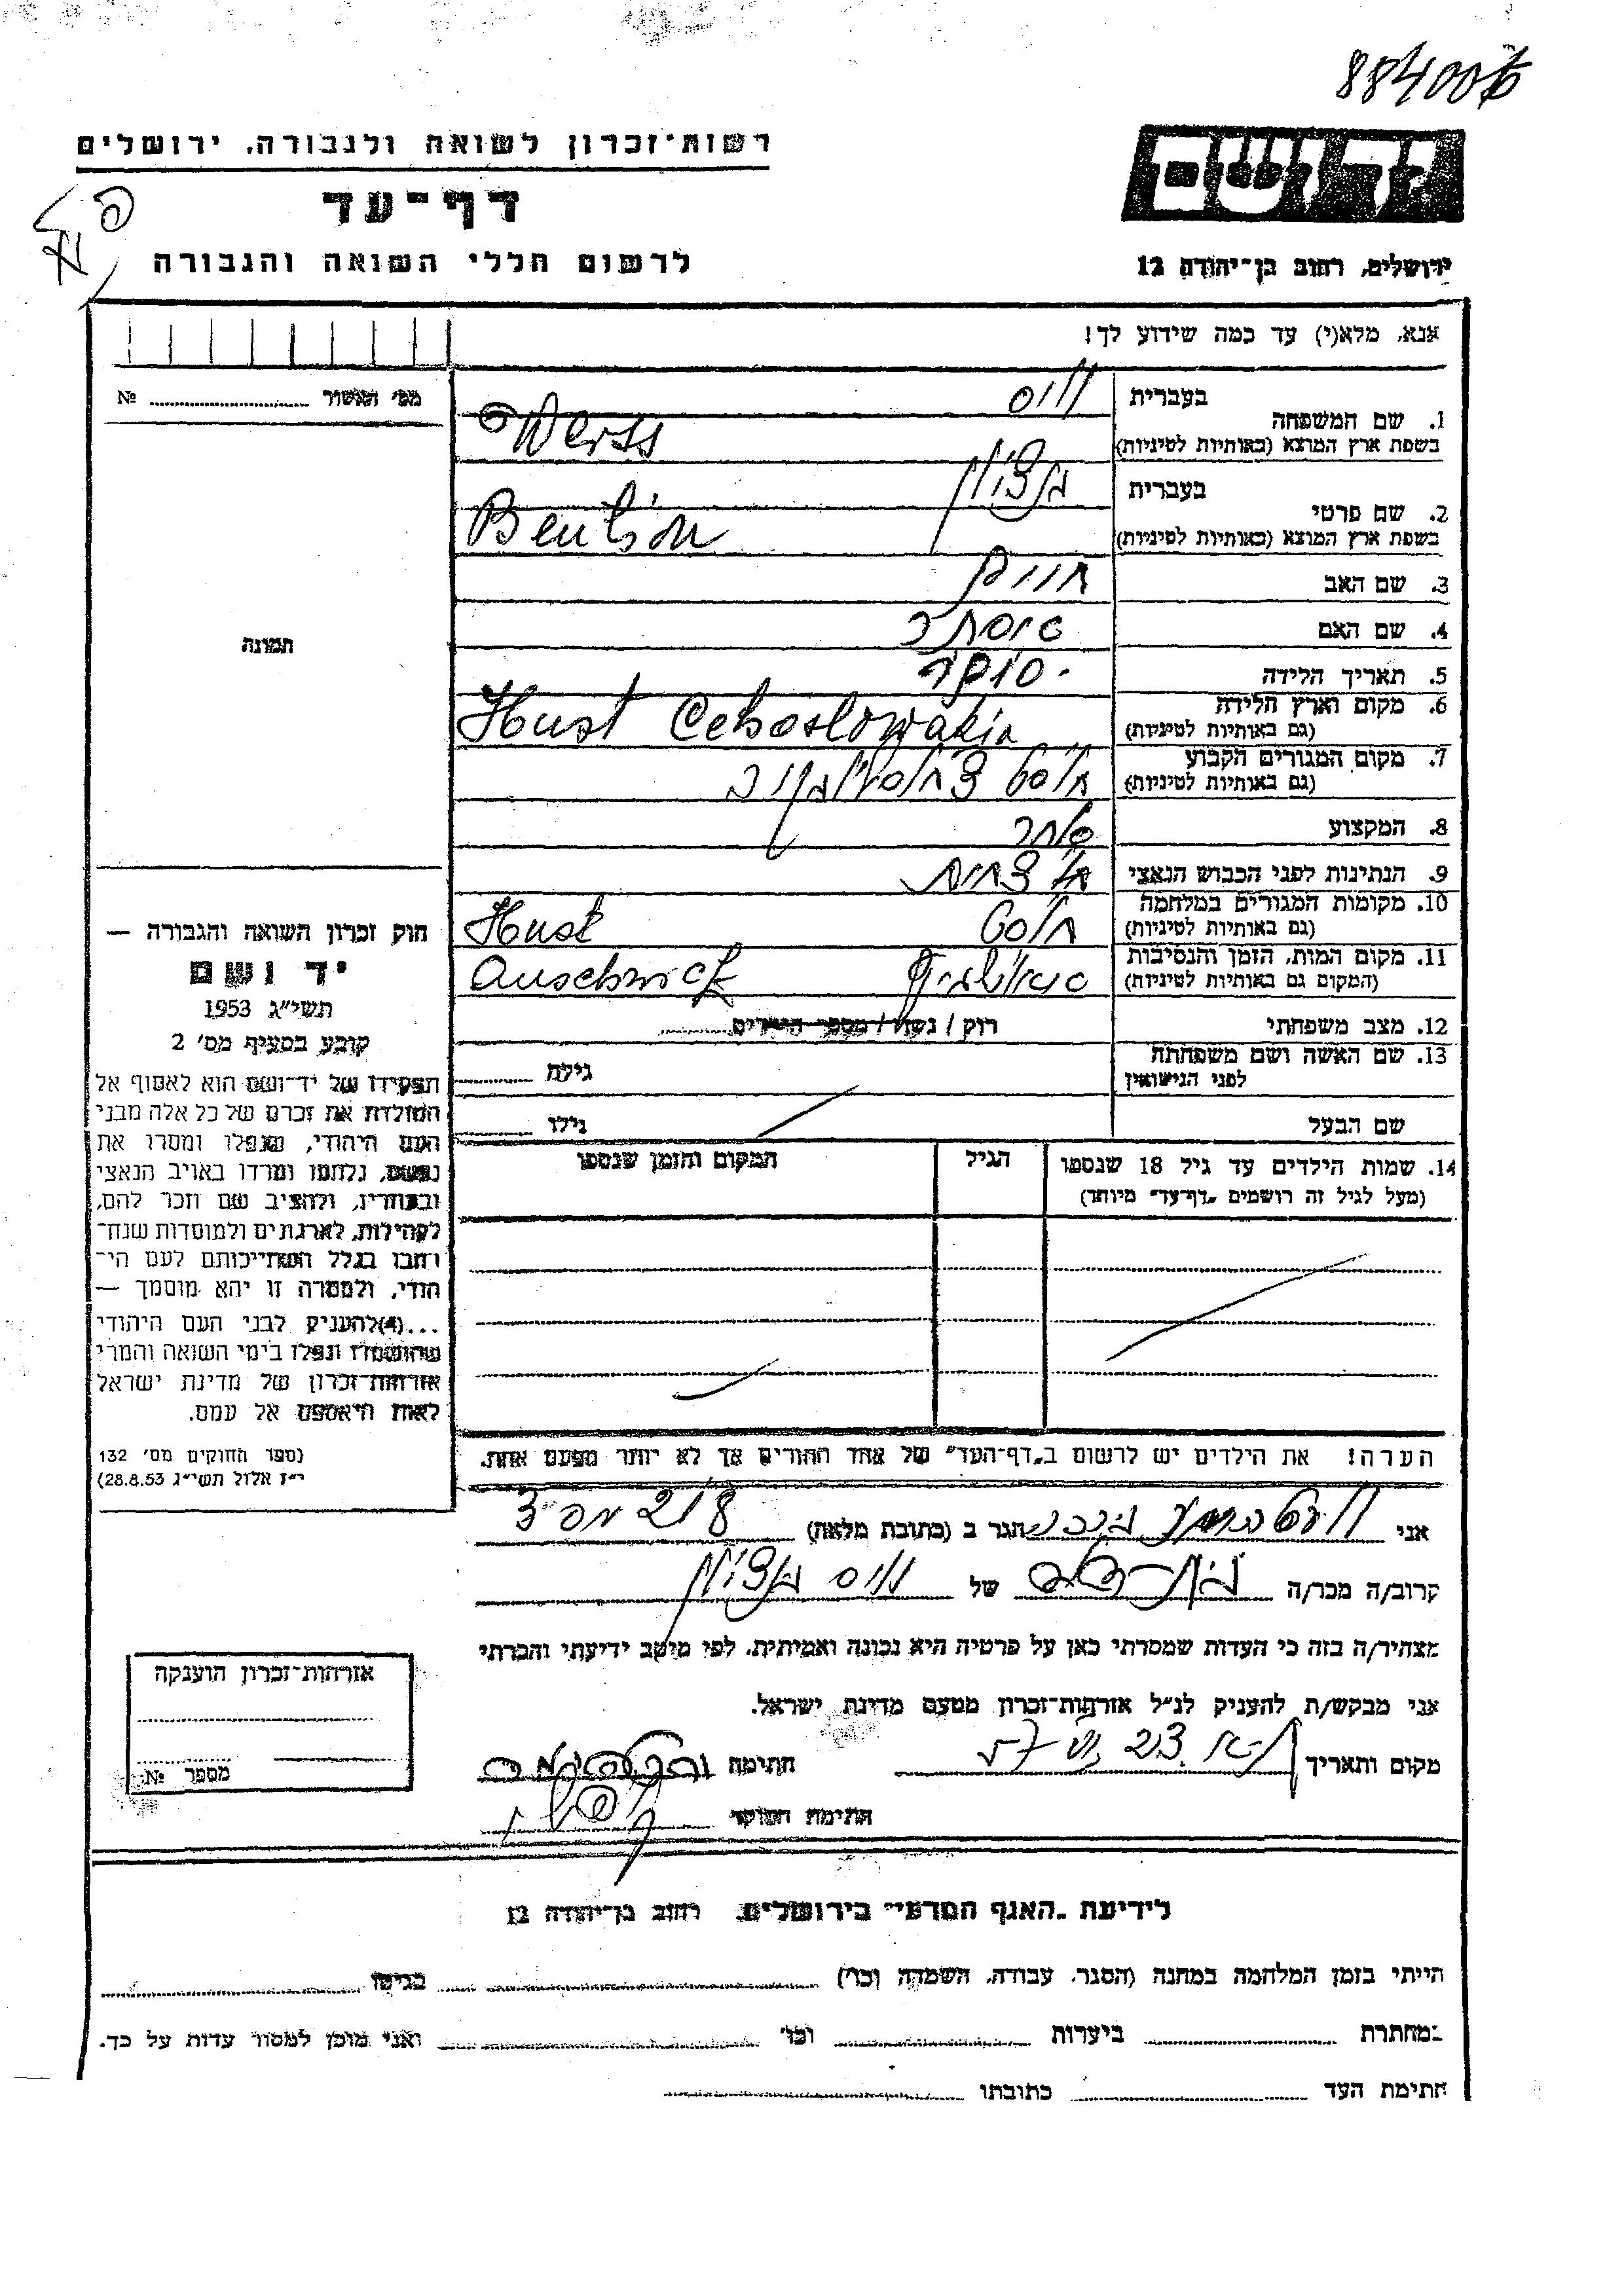 רשות־זכרון לשואה ולגבורה, ירושלים
דף־עד
לרשום חללי השואה והגבורה
יד ושם
ירושלים, רחוב בן־יהודה 12
אנא, מלא(י) עד כמה שידוע לך!
מס' האשור № ....................
1. שם המשפחה
בעברית
וויס
בשפת ארץ המוצא (באותיות לטיניות)
Weiss
2. שם פרטי
בעברית
בנציון
בשפת ארץ המוצא (באותיות לטיניות)
Bentsion
3. שם האב
חיים
4. שם האם
אסתר
5. תאריך הלידה
6. מקום וארץ הלידה
(גם באותיות לטיניות)
Hust Cehoslowakia
7. מקום המגורים הקבוע
(גם באותיות לטיניות)
חוסט
8. המקצוע
סוחר
9. הנתינות לפני הכבוש הנאצי
10. מקומות המגורים במלחמה
(גם באותיות לטיניות)
חוסט Hust
11. מקום המות, הזמן והנסיבות
(המקום גם באותיות לטיניות)
Auschwitz
12. מצב משפחתי
רוק / נשוי / מספר הילדים
13. שם האשה ושם משפחתה
לפני הנישואין
גילה
שם הבעל
גילו
14. שמות הילדים עד גיל 18 שנספו
(מעל לגיל זה רושמים „דף־עד" מיוחד)
הגיל
המקום והזמן שנספו
הערה! את הילדים יש לרשום ב„דף־העד" של אחד ההורים אך לא יותר מפעם אחת.
תמונה
חוק זכרון השואה והגבורה —
יד ושם
תשי"ג 1953
קובע בסעיף מס' 2
תפקידו של יד־ושם הוא לאסוף אל
המולדת את זכרם של כל אלה מבני
העם היהודי, שנפלו ומסרו את
נפשם, נלחמו ומרדו באויב הנאצי
ובעוזריו, ולהציב שם וזכר להם,
לקהילות, לארגונים ולמוסדות שנח־
רבו בגלל השתייכותם לעם הי־
הודי, ולמטרה זו יהא מוסמך —
...(4)להעניק לבני העם היהודי
שהושמדו ונפלו בימי השואה והמרי
אזרחות־זכרון של מדינת ישראל
לאות היאספם אל עמם.
(ספר החוקים מס' 132
י"ז אלול תשי"ג 28.8.53)
אני
הגר ב (כתובת מלאה)
קרוב/ה מכר/ה
של וויס בנציון
מצהיר/ה בזה כי העדות שמסרתי כאן על פרטיה היא נכונה ואמיתית, לפי מיטב ידיעתי והכרתי
אני מבקש/ת להעניק לנ"ל אזרחות־זכרון מטעם מדינת ישראל.
מקום ותאריך
חתימה
חתימת הפוקד
אזרחות־זכרון הוענקה
מספר №
לידיעת „האגף המדעי" בירושלים, רחוב בן־יהודה 12
הייתי בזמן המלחמה במחנה (הסגר, עבודה, השמדה וכו') .................... בגיטו ....................
במחתרת .................... ביערות .................... וכו' .................... ואני מוכן למסור עדות על כך.
חתימת העד .................... כתובתו ....................